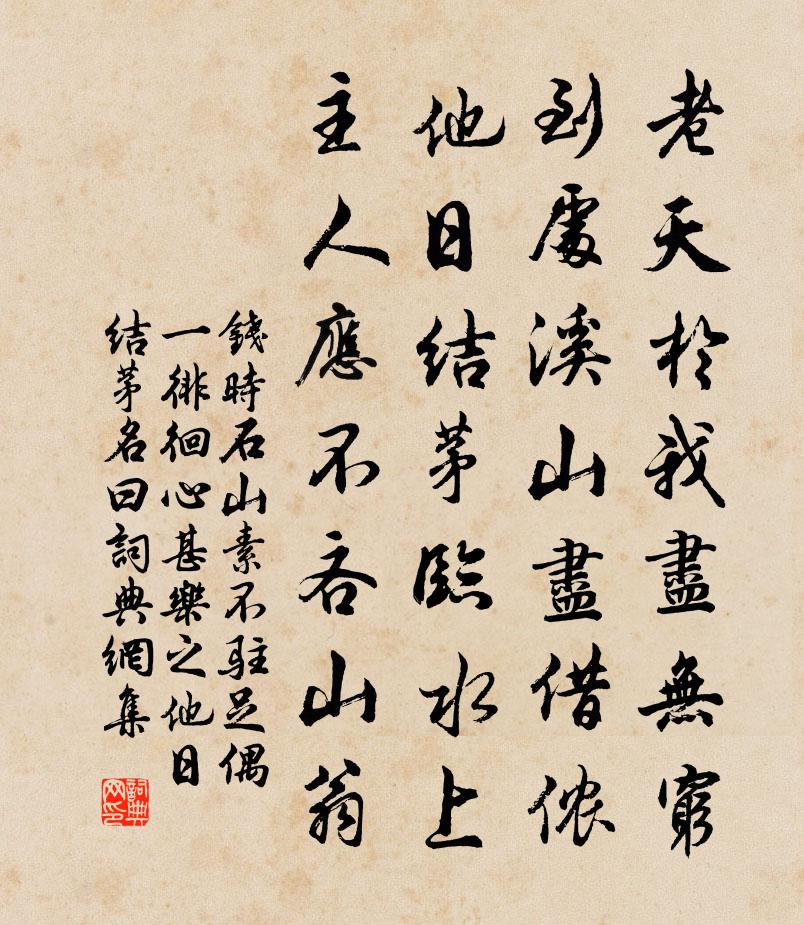 老天於我盡無窮
到處溪山盡借儂
他日結茅臨水上
主人應不吝山翁
錢時石山素不駐足偶
一徘徊心甚樂之他日
結茅名曰詞典網集
詞典网印